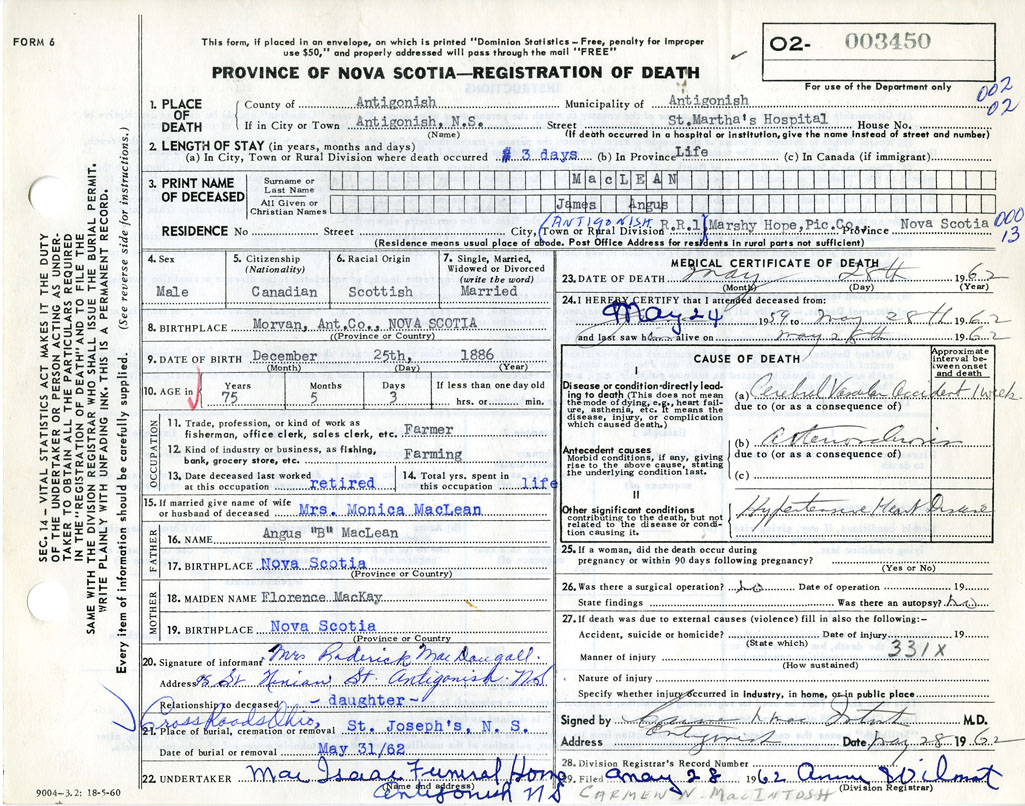 FORM 6
This form, if placed in an envelope, on which is printed "Dominion Statistics – Free, penalty for improper
use $50," and properly addressed will pass through the mail "FREE"
PROVINCE OF NOVA SCOTIA—REGISTRATION OF DEATH
O2- 003450
For use of the Department only
002
02
1. PLACE OF DEATH
County of Antigonish Municipality of Antigonish
If in City or Town Antigonish, N.S. Street St.Martha's Hospital House No.
(Name) (If death occurred in a hospital or institution, give the name instead of street and number)
2. LENGTH OF STAY (in years, months and days)
(a) In City, Town or Rural Division where death occurred 3 days (b) In Province Life (c) In Canada (if immigrant)
3. PRINT NAME OF DECEASED
Surname or Last Name MacLEAN
All Given or Christian Names James Angus
RESIDENCE No Street City, (Town or Rural Division ANTIGONISH R.R.1) Marshy Hope, Pic.Co. Province Nova Scotia
000
13
(Residence means usual place of abode. Post Office Address for residents in rural parts not sufficient)
4. Sex
Male
5. Citizenship (Nationality)
Canadian
6. Racial Origin
Scottish
7. Single, Married, Widowed or Divorced (write the word)
Married
8. BIRTHPLACE Morvan, Ant.Co., NOVA SCOTIA
((Province or Country)
9. DATE OF BIRTH December 25th, 1886
(Month) (Day) (Year)
10. AGE in
Years Months Days If less than one day old
75 5 3 hrs. or min.
OCCUPATION
11. Trade, profession, or kind of work as
fisherman, office clerk, sales clerk, etc. Farmer
12. Kind of industry or business, as fishing,
bank, grocery store, etc. Farming
13. Date deceased last worked
at this occupation retired
14. Total yrs. spent in
this occupation life
15. If married give name of wife
or husband of deceased Mrs. Monica MacLean
FATHER
16. NAME Angus "B" MacLean
17. BIRTHPLACE Nova Scotia
(Province or Country)
MOTHER
18. MAIDEN NAME Florence MacKay
19. BIRTHPLACE Nova Scotia
(Province or Country
20. Signature of informant Mrs Roderick MacDougall.
Address St Ninian St. Antigonish. NS
Relationship to deceased - daughter -
Cross Roads Ohio,
21. Place of burial, cremation or removal St. Joseph's, N. S.
Date of burial or removal May 31/62
22. UNDERTAKER Mac Isaac Funeral Home
(Name and address)
Antigonish NS
9004-3.2: 18-5-60
MEDICAL CERTIFICATE OF DEATH
23. DATE OF DEATH May 28th 1962
(Month) (Day) (Year)
24. I HEREBY CERTIFY that I attended deceased from:
May 24 1959 to May 28th 1962
and last saw h alive on May 28th 1962
CAUSE OF DEATH
Approximate interval between onset and death
I
Disease or condition directly leading to death (This does not mean the mode of dying, e.g., heart failure, asthenia, etc. It means the disease, injury, or complication which caused death.)
(a) Cerebral Vascular Accident 1 week
due to (or as a consequence of)
(b)
due to (or as a consequence of)
(c)
Antecedent causes
Morbid conditions, if any, giving rise to the above cause, stating the underlying condition last.
II
Other significant conditions
contributing to the death, but not related to the disease or condition causing it.
Hypertensive Heart Disease
25. If a woman, did the death occur during
pregnancy or within 90 days following pregnancy?
(Yes or No)
26. Was there a surgical operation? no Date of operation 19
State findings Was there an autopsy? no
27. If death was due to external causes (violence) fill in also the following:–
Accident, suicide or homicide? Date of injury 19
(State which)
331X
Manner of injury
(How sustained)
Nature of injury
Specify whether injury occurred in industry, in home, or in public place
Signed by M.D.
Address Antigonish Date May 28 1962
28. Division Registrar's Record Number
29. Filed May 28 1962 Anne Wilmot
(Division Registrar)
CARMEN N. MACINTOSH
SEC. 14 – VITAL STATISTICS ACT MAKES IT THE DUTY
OF THE UNDERTAKER OR PERSON ACTING AS UNDER-
TAKER TO OBTAIN ALL THE PARTICULARS REQUIRED
IN THE "REGISTRATION OF DEATH" AND TO FILE THE
SAME WITH THE DIVISION REGISTRAR WHO SHALL ISSUE THE BURIAL PERMIT.
WRITE PLAINLY WITH UNFADING INK. THIS IS A PERMANENT RECORD.
Every item of information should be carefully supplied. (See reverse side for instructions.)